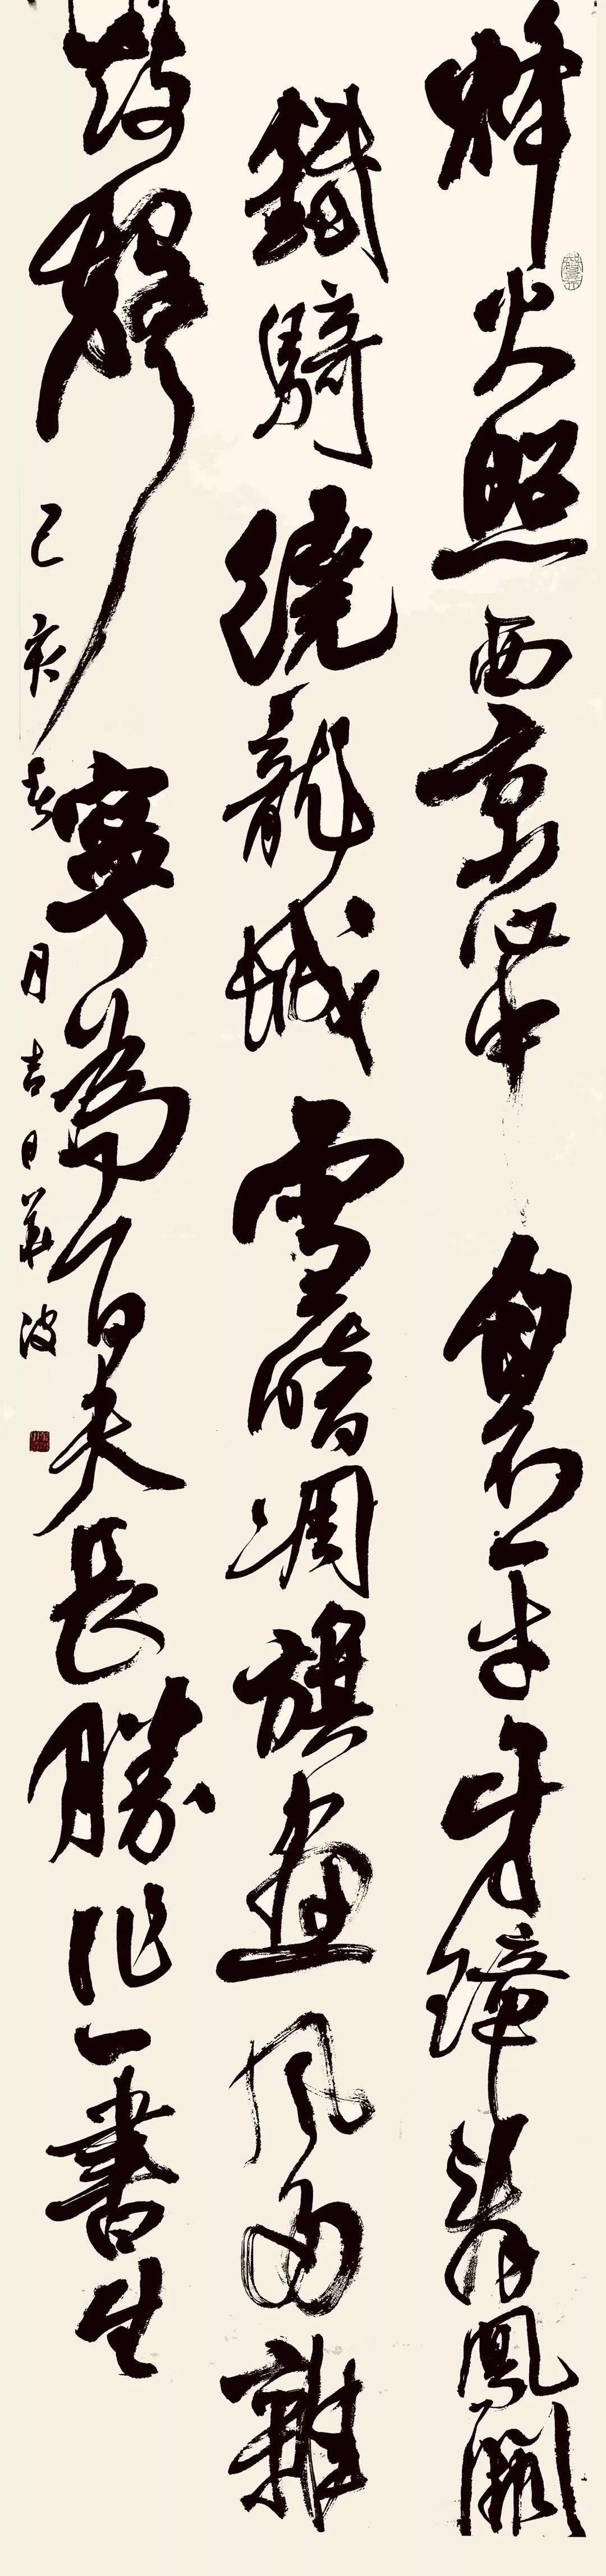 烽火照西京心中自不平牙璋辭鳳闕
鐵騎繞龍城雪暗凋旗畫風多雜
鼓聲寧為百夫長勝作一書生
己亥春月吉日華波